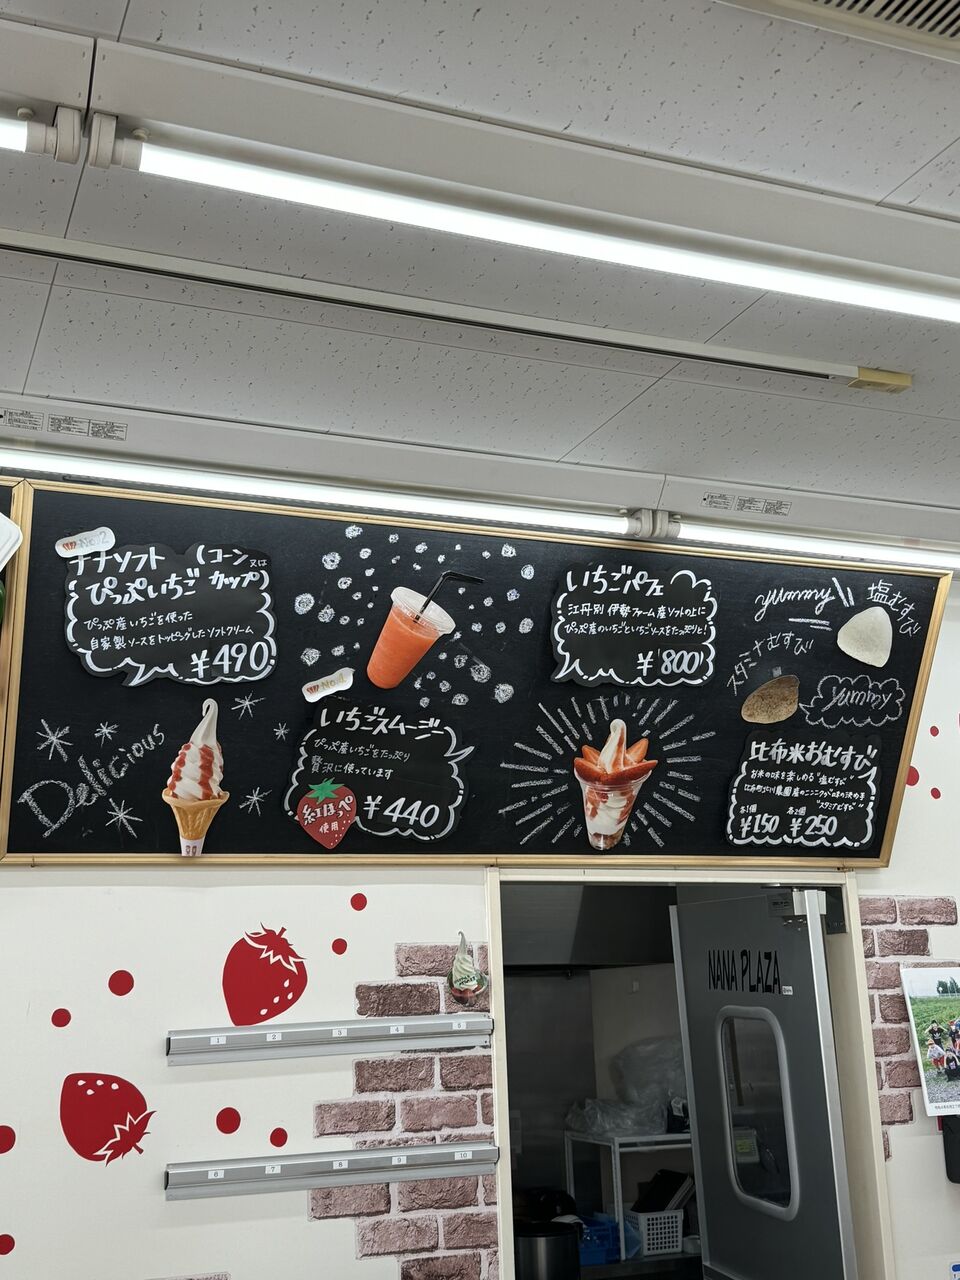 No.2
ナナソフト (コーン又は
ぴっぷいちご カップ)
ぴっぷ産いちごを使った
自家製ソースをトッピングしたソフトクリーム
¥490
Delicious
No.4
いちごスムージー
ぴっぷ産いちごをたっぷり
贅沢に使っています
紅ほっぺ
使用
¥440
いちごパフェ
江丹別 伊勢ファーム産ソフトの上に
ぴっぷ産のいちごといちごソースをたっぷりと!
¥800
yummy
塩むすび
スタミナむすび
yummy
比布米おむすび
お米の味を楽しめる"塩むすび"
比布町北川農園産のニンニクが味の決め手
"スタミナむすび"
各1個 各2個
¥150 ¥250
NANA PLAZA
1 2 3 4 5
6 7 8 9 10